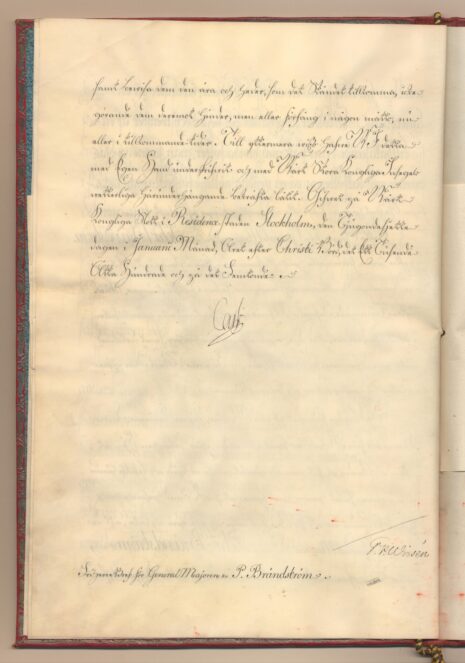 samt bevisa dem den ära och heder, som det Ståndet tillkomma, icke
görande dem deremot hinder, men eller förfång i någon måtto, nu
eller i tillkommande tider. Till yttermera visso hafve Vi detta
med Egen Hand underskrifvit och med Vårt Stora Kongliga Insegel
vetterligen härunderhängande bekräfta låtit. Gifvet på Vårt
Kongliga Slott i Residence staden Stockholm, den Tjugondesjette
dagen i Januarii Månad, Året efter Christi Börd, det Ett Tusende
Åtta Hundrade och på det Femtonde.
Carl
Friherrebref för General Majoren P. Brändström.